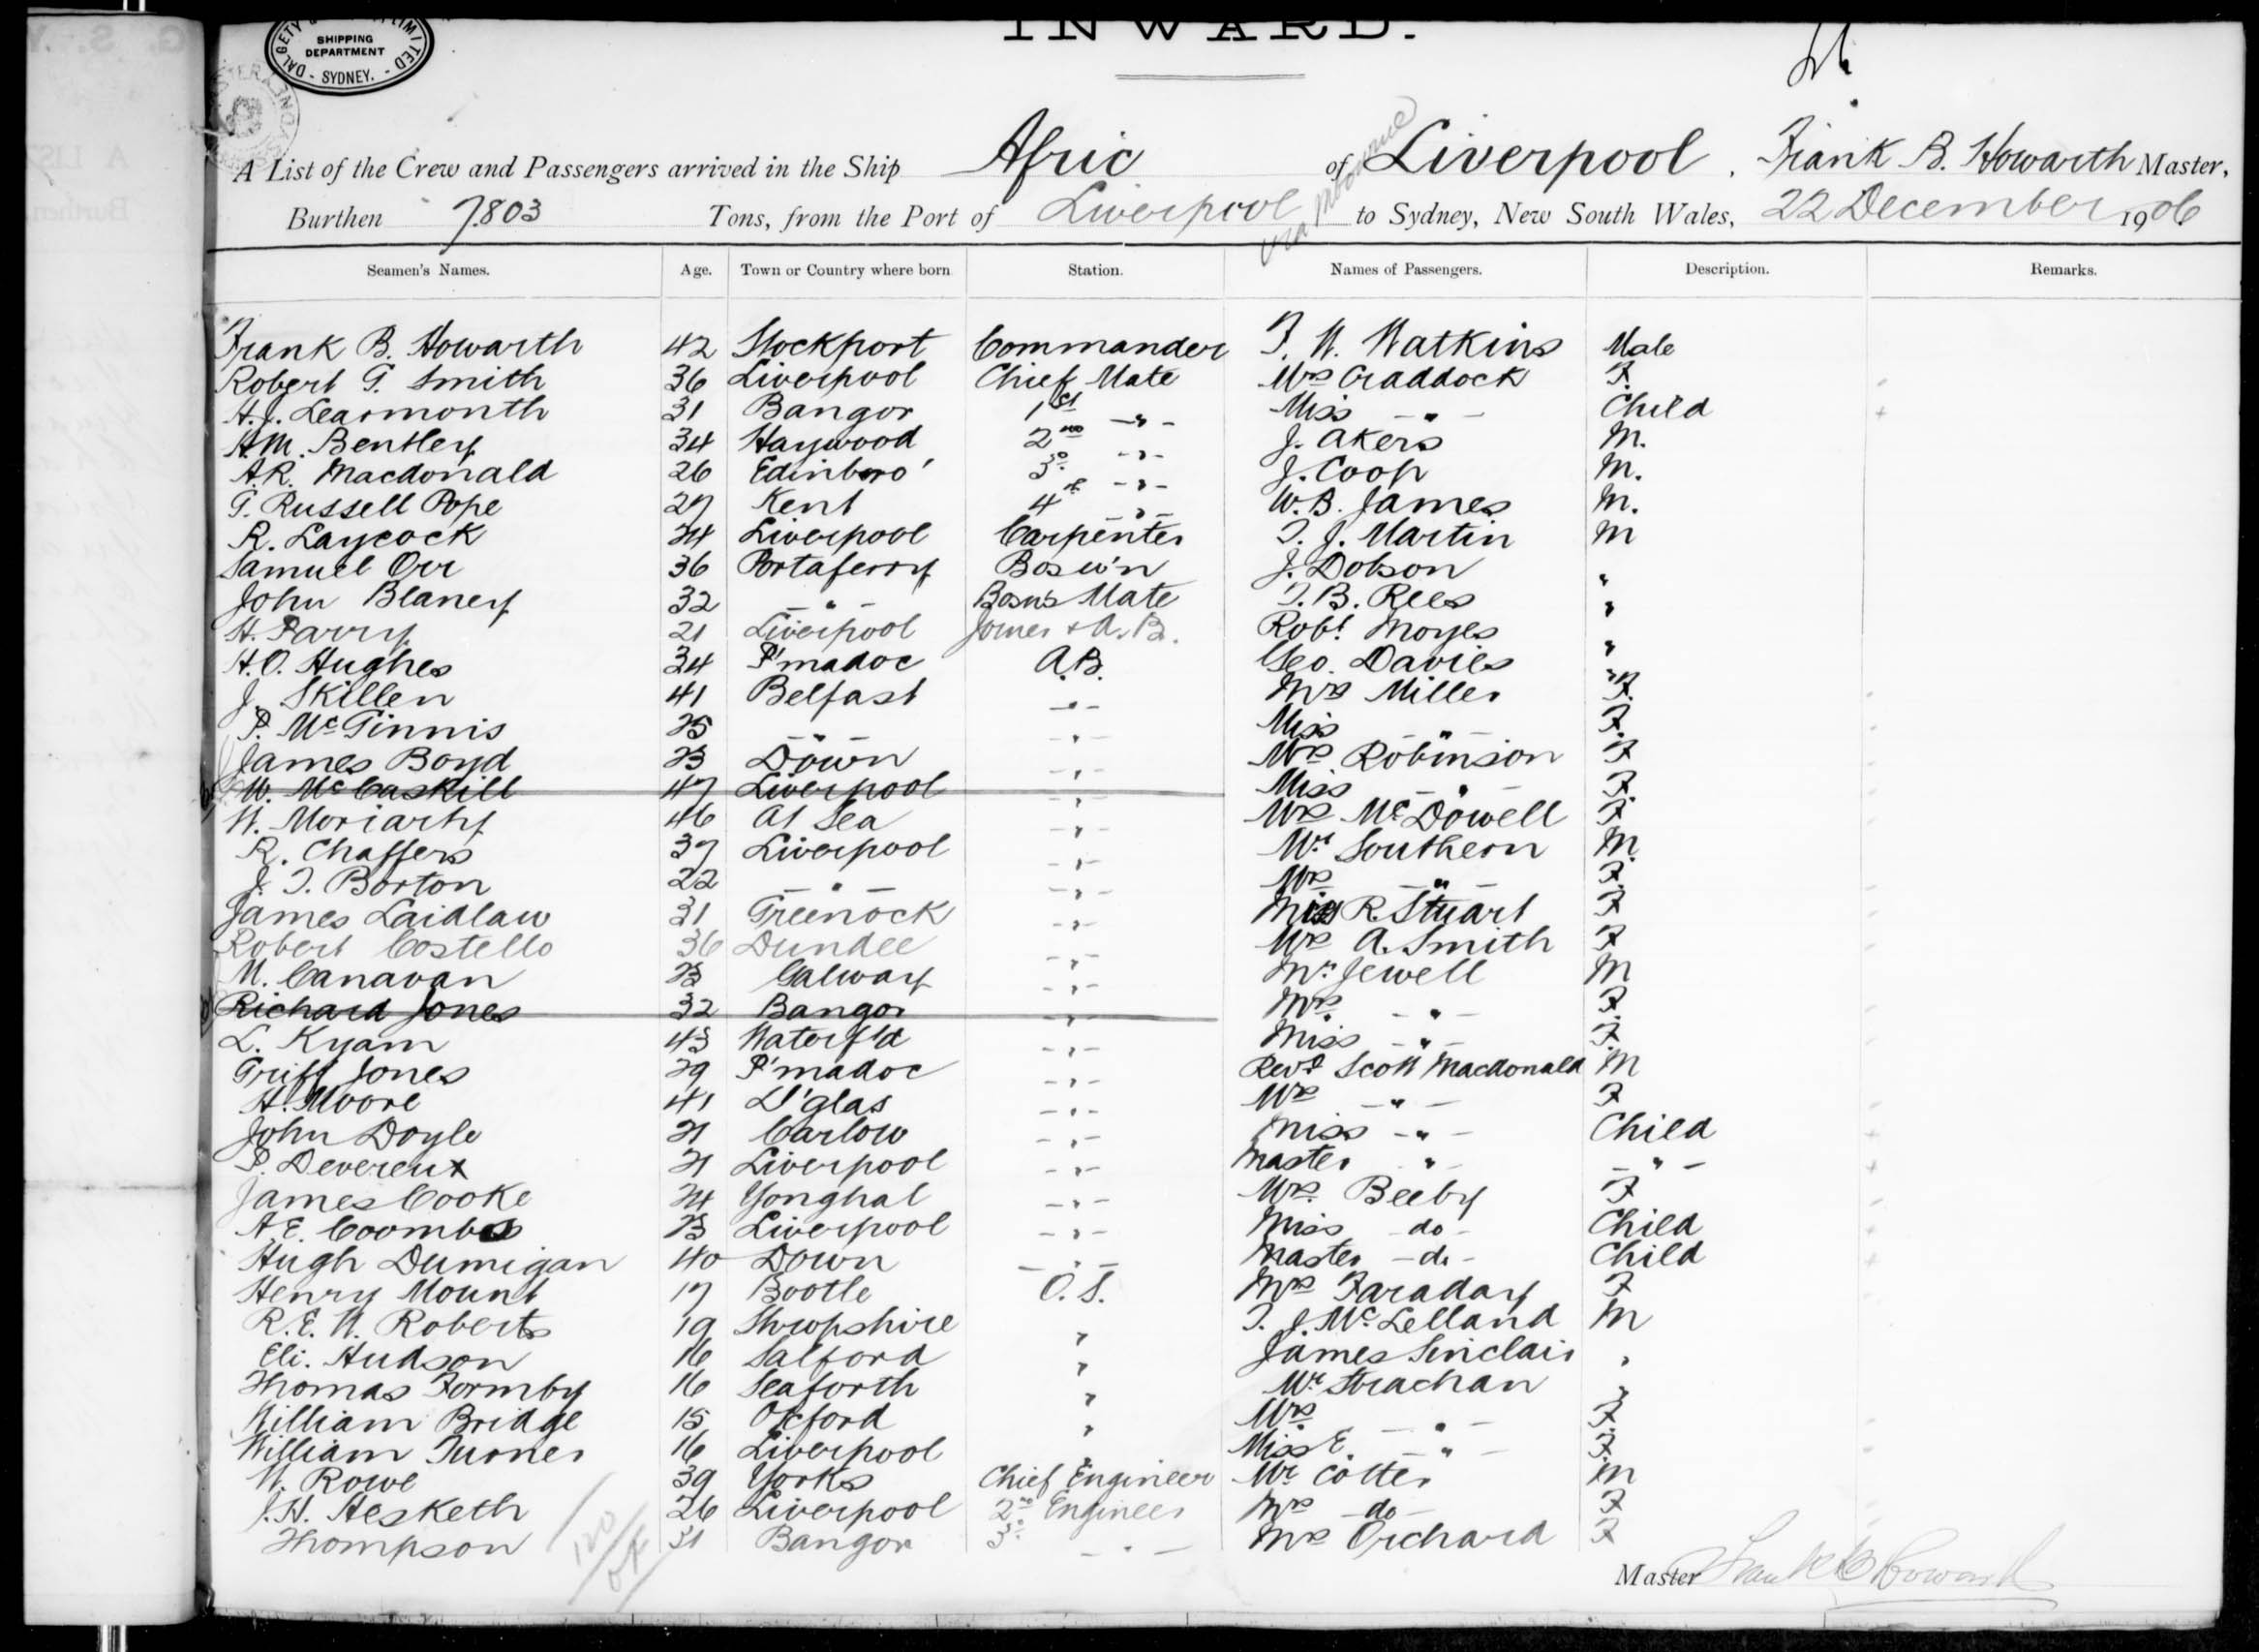 INWARD.
DALGETY LIMITED
SHIPPING
DEPARTMENT
- SYDNEY. -
A List of the Crew and Passengers arrived in the Ship Afric of Liverpool, Frank B. Howarth Master,
Burthen 7.803 Tons, from the Port of Liverpool via Melbourne to Sydney, New South Wales, 22 December 1906
Seamen's Names. Age. Town or Country where born Station. Names of Passengers. Description. Remarks.
Frank B. Howarth 42 Stockport Commander F. W. Watkins Male
Robert G. Smith 36 Liverpool Chief Mate Mrs Craddock F.
H.J. Learmonth 31 Bangor 1st - " - Miss - " - Child
H.M. Bentley 34 Haywood 2nd - " - J. Akers M.
A.R. Macdonald 26 Edinboro' 3d - " - J. Coop M.
G. Russell Pope 27 Kent 4th - " - W.B. James M.
R. Laycock 24 Liverpool Carpenter T. J. Martin M
Samuel Orr 36 Portaferry Bosu'n J. Dobson "
John Blaney 32 - " - Bosn's Mate T.B. Rees "
H. Parry 21 Liverpool Joiner & A.B. Robt Moyes "
H.O. Hughes 34 P'madoc A.B. Geo. Davies "
J. Skillen 41 Belfast - " - Mrs Miller F.
P. McGinnis 25 - " - - " - Miss - " - F.
James Boyd 23 Down - " - Mrs Robinson F
W. McCaskill 47 Liverpool - " - Miss - " - F.
W. Moriarty 46 At Sea - " - Mrs McDowell F
R. Chaffers 37 Liverpool - " - Mr Southern M.
J. T. Borton 22 - " - - " - Mrs - " - F.
James Laidlaw 31 Greenock - " - Miss R. Stuart F
Robert Costello 36 Dundee - " - Mrs A. Smith F
M. Canavan 23 Galway - " - Mr Jewell M
Richard Jones 32 Bangor - " - Mrs - " - F.
L. Kyam 43 Waterf'd - " - Miss - " - F.
Griff Jones 29 P'madoc - " - Revd Scott Macdonald M
H. Moore 41 D'glas - " - Mrs - " - F
John Doyle 21 Carlow - " - Miss - " - Child
P. Devereux 21 Liverpool - " - Master " - " -
James Cooke 24 Yonghal - " - Mrs Beeby F
A.E. Coombs 23 Liverpool - " - Miss - do - Child
Hugh Dumigan 40 Down - " - Master - do - Child
Henry Mount 17 Bootle O.S. Mrs Faraday F
R.E.W. Roberts 19 Shropshire " T. J. McLelland M
Eli. Hudson 16 Salford " James Sinclair "
Thomas Formby 16 Seaforth " Mr Strachan "
William Bridge 15 Oxford " Mrs - " - F.
William Turner 16 Liverpool " Miss E. - " - F.
W. Rowe 39 Yorks Chief Engineer Mr Cotter M
J.H. Hesketh 26 Liverpool 2nd Engineer Mrs - do - F
Thompson 31 Bangor 3d - " - Mrs Orchard F
Master Frank B Howarth